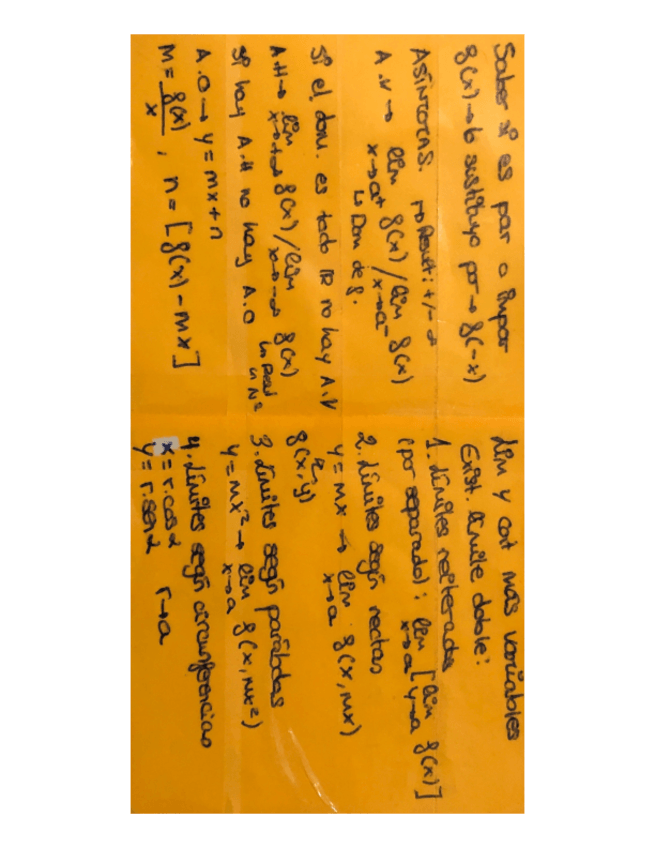 Saber si es par o impar
f(x) → lo sustituyo por → f(-x)
Asíntotas. → Result: +/- ∞
A.V → lim x→a+ f(x) / lim x→a- f(x)
↳ Dom de f.
Si el dom. es todo IR no hay A.V
A.H → lim x→+∞ f(x) / lim x→-∞ f(x)
↳ Real
Si hay A.H no hay A.O
A.O → y = mx + n
M = f(x)/x , n = [f(x) - mx]
Lim y cont más variables
Exist. límite doble:
1. Límites reiterados
(por separado): lim x→a [lim y→a f(x)]
2. Límites según rectas
y = mx → lim x→a f(x, mx)
f(x, y)
3. Límites según parábolas
y = mx² → lim x→a f(x, mx²)
4. Límites según circunferencias
x = r.cos α r→a
y = r.sen α